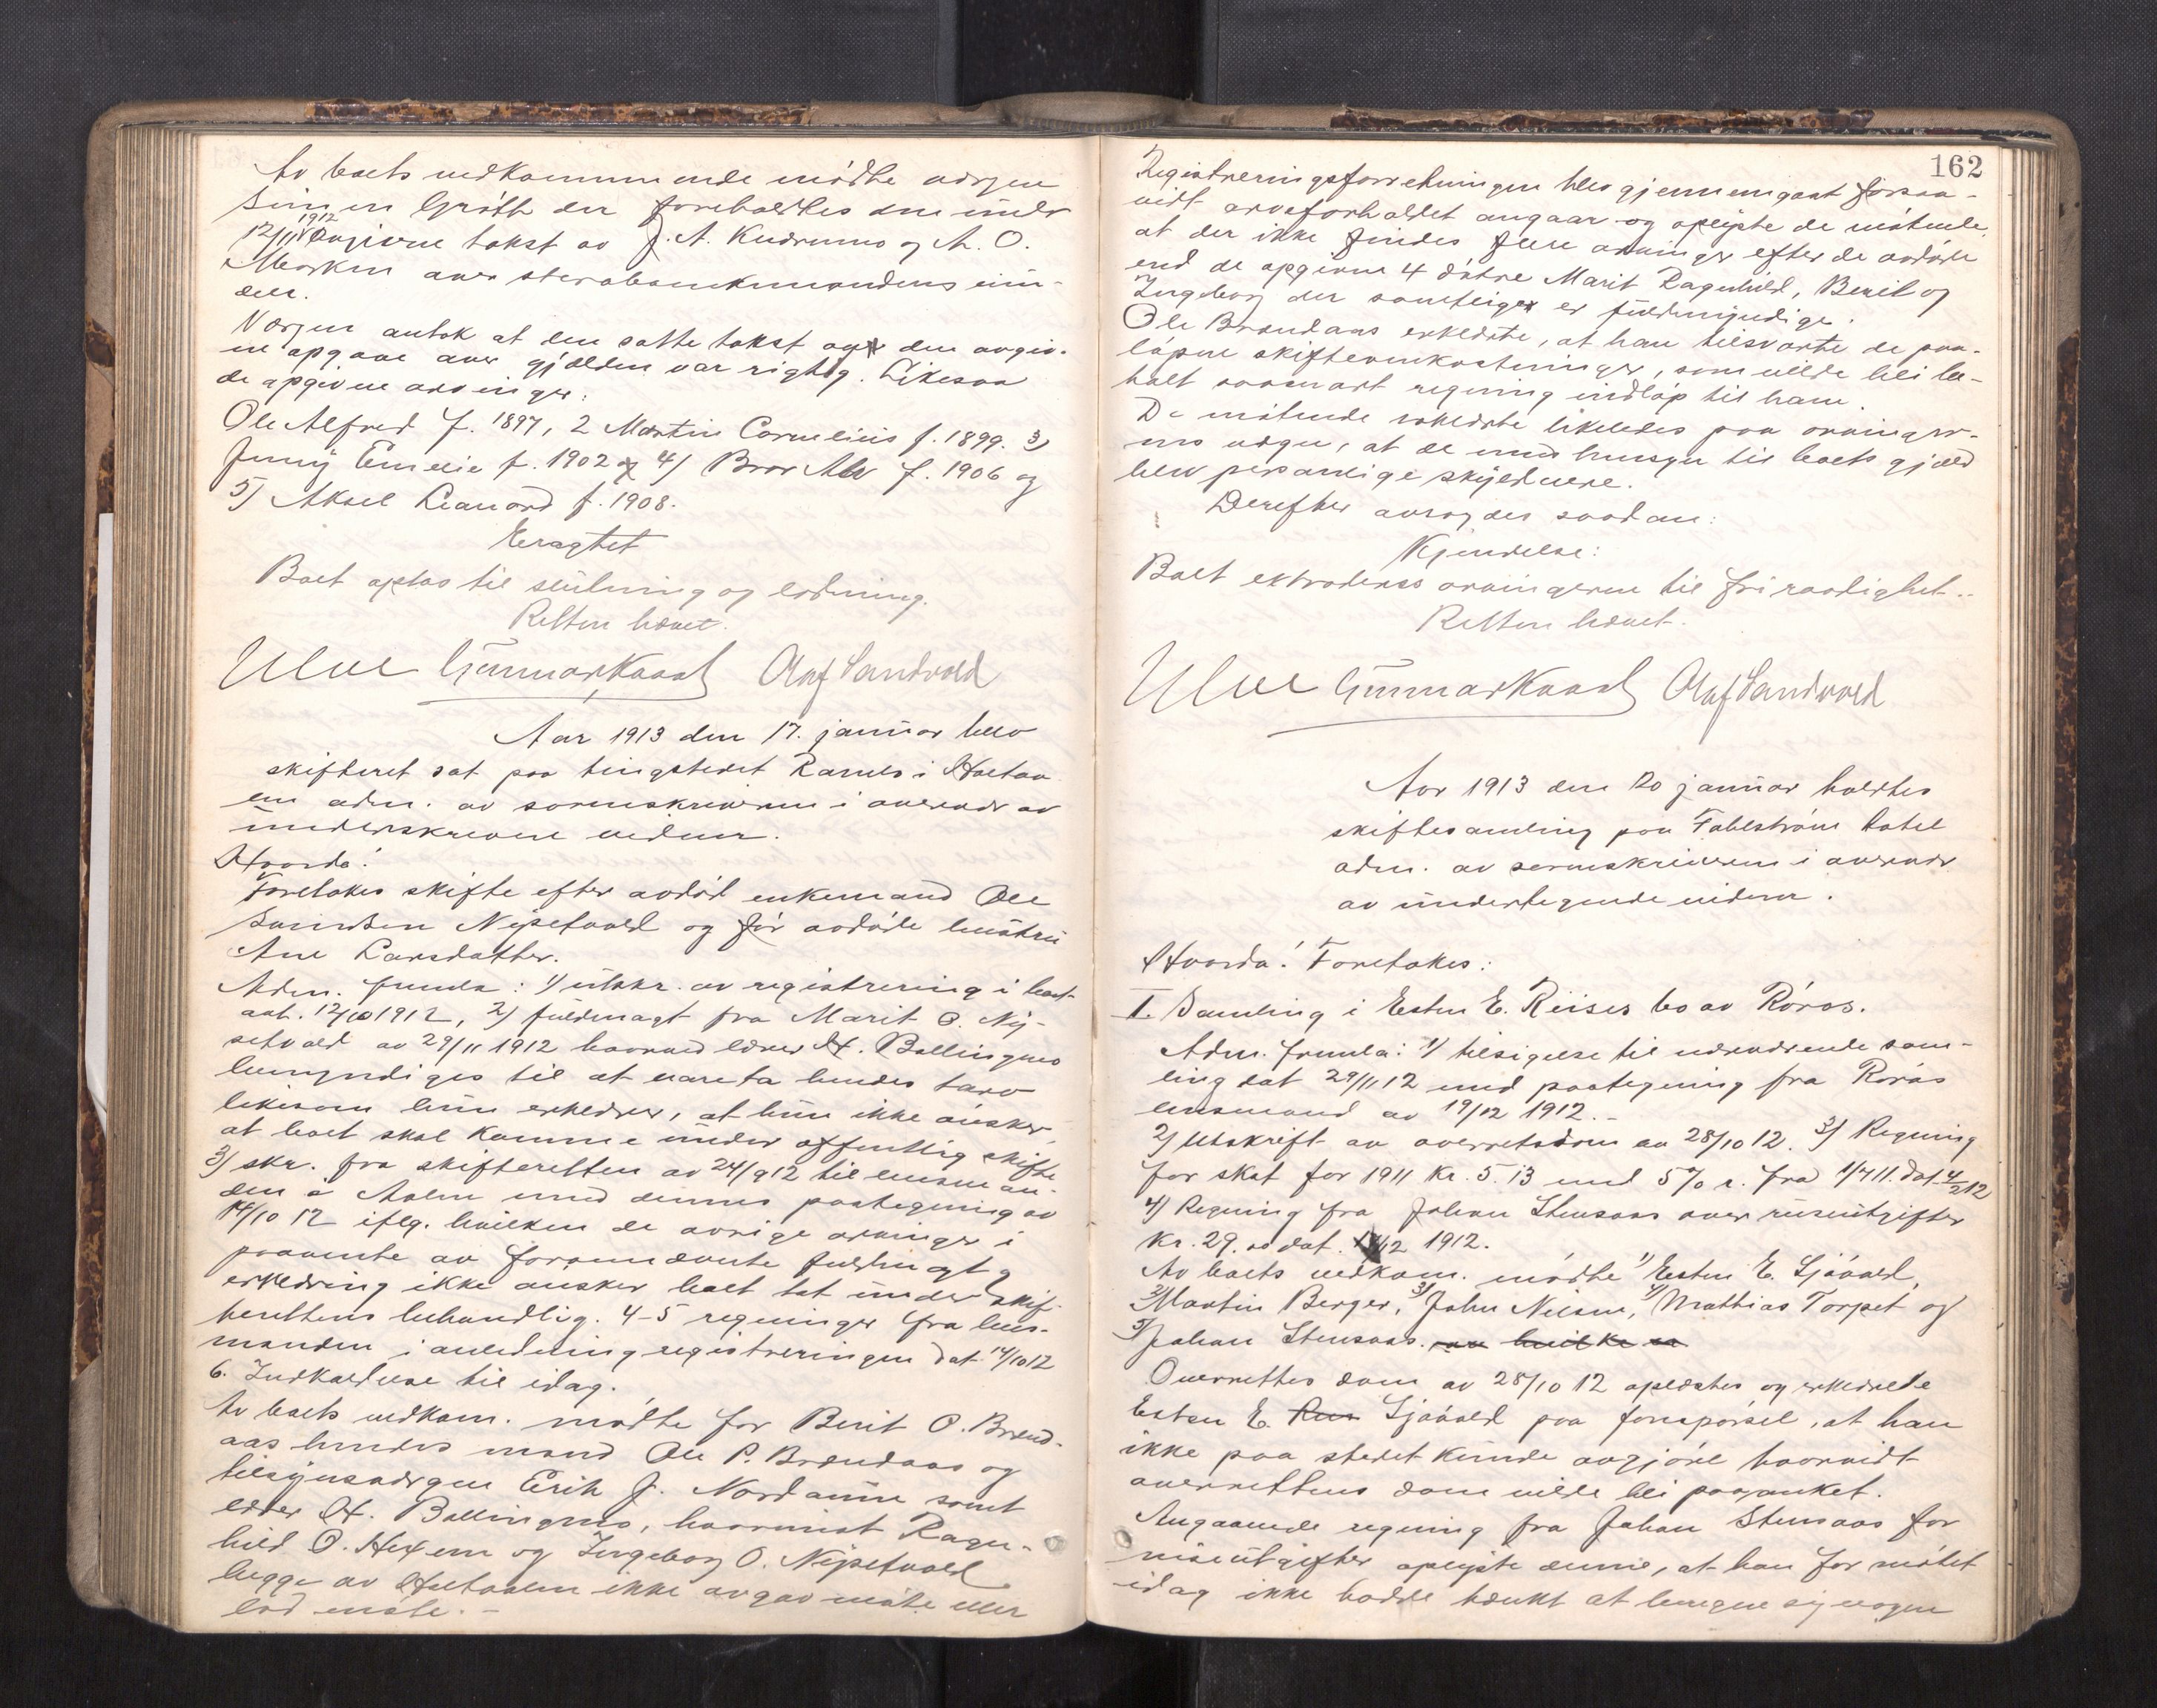 Av boets vedkommende mødte værgen
Simen Grøtt der foreholdtes den under
12/11 1912 avgivne takst av J. A. Kudrumo og A. O.
Morken over stervbomkmandens ein-
dele.
Værgen antok at den satte takst og den avgiv-
ne opgave over gjælden var rigtig. Likesaa
de opgivne arvinger:
Ole Alfred f. 1897, 2 Martin Cornelius f. 1899. 3)
Jenny Emelie f. 1902 og 4) Bror Alv f. 1906 og
5) Aksel Leonard f. 1908.
Eragtet
Boet optas til slutning og lodning.
Retten hævet.
Ulve Gunnar Kaast Olaf Sandvold
Aar 1913 den 17. januar blev
skifteret sat paa tingstedet Ramlo i Haltaa
len adm. av sorenskriveren i overvær av
underskrevne vidner.
Hvorda!
Foretokes skifte efter avdød enkemand Ole
Simensen Nysetvold og før avdøde hustru
Ane Larsdatter.
Adm. fremla: 1) utskr. av registrering i boet
avh. 12/10 1912, 2) fuldmagt fra Marit O. Ny-
setvold av 29/11 1912 hvorved lærer H. Bollingmo
bemyndiges til at vareta hendes tarv
likesom hun erklærer, at hun ikke ønsker
at boet skal komme under offentlig skifte
3) skr. fra skifteretten av 24/9 12 til lensman-
den i Aalen med dennes paategning av
14/10 12 iflg. hvilken de øvrige arvinger i
paavente av forannævnte fuldmagt og
erklæring ikke ønsker boet tat under skif-
terettens behandlig. 4-5 regninger fra lens-
manden i anledning registreringen dat. 14/10 12
6. Indkaldelse til idag.
Av boets vedkom. mødte for Berit O. Brænd-
aas hendes mand Ole P. Brændaas og
tilsynsværgen Erik J. Nordaune samt
lærer H. Bollingmo, hvorimot Ragn-
hild O. Hexem og Ingeborg O. Nysetvold
begge av Haltaalen ikke avgav møte eller
lod møte. -
162
Registreringsforretningen blev gjennemgaat forsaa-
vidt arveforholdet angaar og oplyste de møtende,
at der ikke findes flere arvinger efter de avdøde
end de opgivne 4 døtre Marit Ragnhild, Berit og
Ingeborg der samtlige er fuldmyndige.
Ole Brændaas erklærte, at han tilsvarte de paa-
løpne skifteomkostninger, som vilde bli be-
talt saasnart regning indløp til ham.
De møtende erklærte likeledes paa arvinger-
nes vegne, at de med hensyn til boets gjæld
blev personlige skyldnere.
Derefter avsagdes saadan:
Kjendelse:
Boet extraderes arvingerne til fri raadighet..
Retten hævet.
Ulve Gunnar Kaast Olaf Sandvold
Aar 1913 den 20 januar holdtes
skiftesamling paa Fahlstrøm hotel
adm. av sorenskriveren i overvær
av undertegnede vidner.
Hvorda! Foretokes:
I. Samling i Esten E. Riises bo av Røros.
Adm. fremla: 1) tilsigelse til nærværende sam-
ling dat 29/11 12 med paategning fra Røros
lensmand av 19/12 1912. -
2) Utskrift av overretsdom av 28/10 12. 3) Regning
for skat for 1911 kr. 5.13 med 5% r. fra 1/7 11. dat. 4/2 12
4) Regning fra Johan Stensaas over reiseutgifter
kr. 29.00 dat. 12 1912.
Av boets vedkom. mødte 1) Esten E. Sjøvold,
2) Martin Berger, 3) John Nilsen, 4) Mathias Torpet og
5) Johan Stensaas. av hvilke
Overrettes dom av 28/10 12 oplæstes og erklærede
Esten E. Sjøvold paa forespørsel, at han
ikke paa stedet kunde avgjøre hvorvidt
overrettens dom vilde bli paaanket.
Angaaende regning fra Johan Stensaas for
reiseutgifter oplyste denne, at han for møtet
idag ikke hadde tænkt at beregne sig nogen